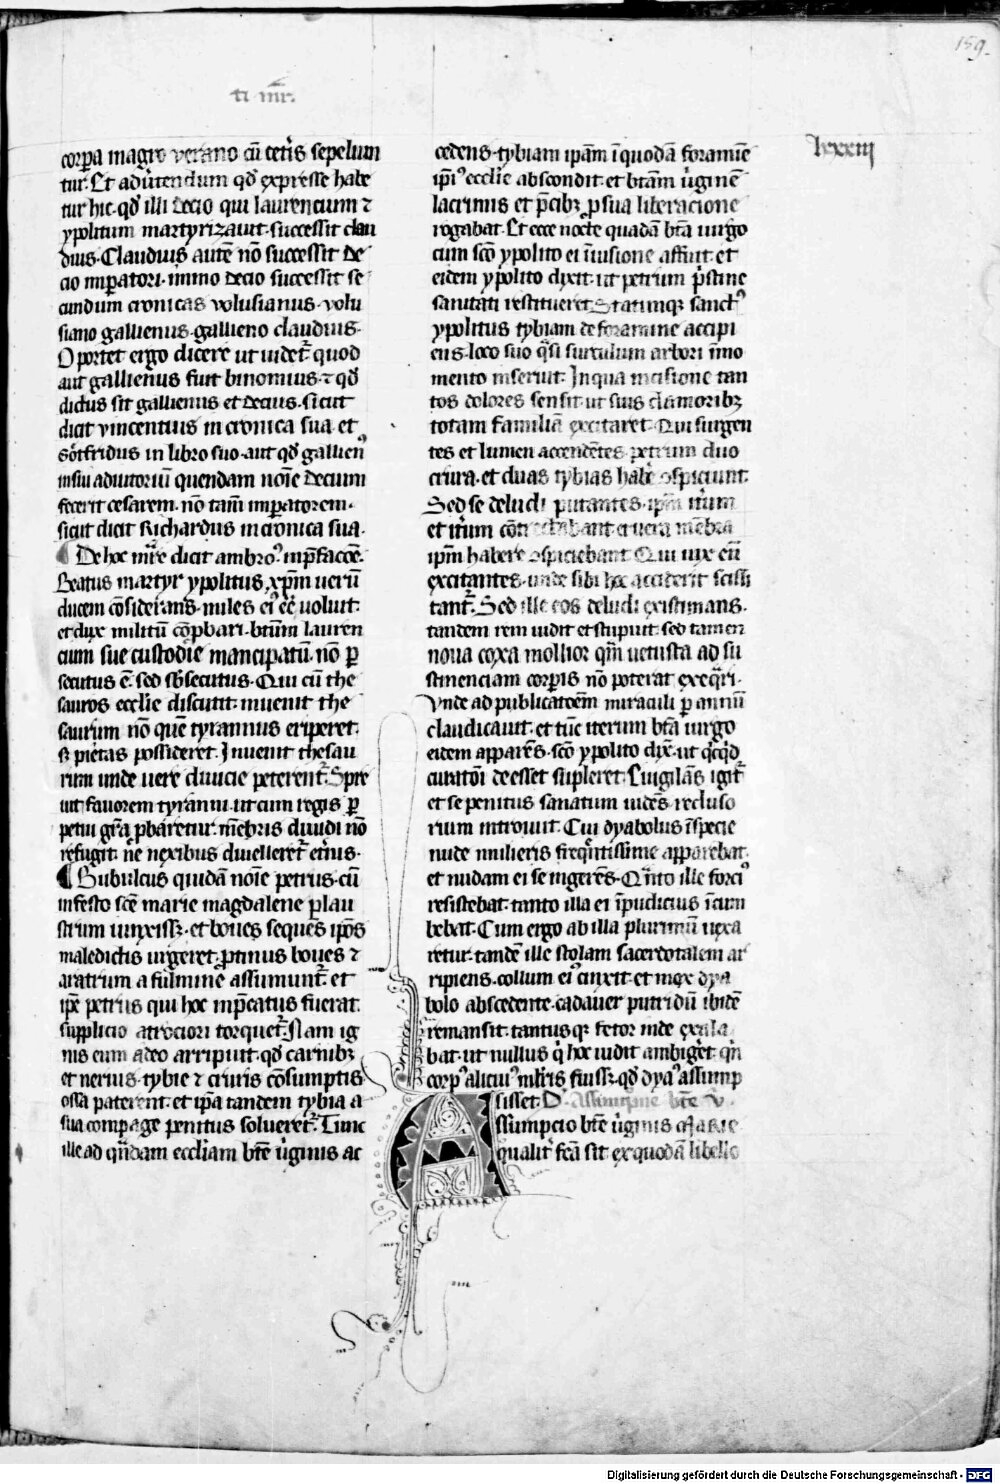 159.
ti mr̄.
lxxxiii
corpa magro verano cū cetis sepelium
tur. Et aduertendum qd̄ expresse habe
tur hic. qd̄ illi decio qui laurencium ⁊
ypolitum martyrizauit. successit clau
dius. Claudius autē nō successit de
cio imperatori. immo decio successit se
cundum cronicas volusianus. volu
siano gallienus. gallieno claudius.
Oportet ergo dicere ut uidet᷑ quod
aut gallienus fuit binomius. ⁊ qd̄
dictus sit gallienus et decius. sicut
dicit vincentius in cronica sua et
gotfridus in libro suo. aut qd̄ gallien
in sui adiutoriū quendam noīe decium
fecerit cesarem. nō tamī imperatorem.
sicut dicit Richardus in cronica sua.
¶ De hoc mr̄e dicit ambroꝰ. in p̄faccōe.
Beatus martyr ypolitus. xp̄m uerū
ducem cōsiderans. miles eiꝰ eē uoluit.
et dux militū cōpbari. btm̄ lauren
cium sue custodīe mancipatū. nō per
secutus ē. sed sb̄secutus. Qui cū the
sauros ecclīe discutit. inuenit the
saurum nō quē tyrannus eriperet.
sꝫ pietas possideret. Inuenit thesau
rum unde uere diuicie peterent᷑. Spre
uit fauorem tyranni. ut cum regis per
petui gr̄a pbaretur. mēbris diuidi nō
refugit. ne nexibus diuelleret᷑ et̄nis.
¶ Bubulcus quidā noīe petrus. cū
in festo scē marie magdalene plau
strum iunxissꝫ. et boues seques ip̄os
maledictis urgeret. protinus boues ⁊
aratrum a fulmine assumunt᷑. et
ip̄e petrus qui hoc imp̄catus fuerat.
supplicio atrociori torquet᷑. Nam ig
nis eum adeo arripuit. qd̄ carnibꝫ
et neruis. tybie ⁊ cruris cōsumptis
ossa paterent. et ip̄a tandem tybia a
sua compage penitus solueret᷑. Tunc
ille ad quādam ecclīam btē uginis ac
cedens. tybiam ipām ī quodā foramīe
ip̄iꝰ ecclīe abscondit. et btām uginē
lacrimis et p̄cibꝫ pro sua liberacione
rogabat. Et ecce nocte quadā btā uirgo
cum scō ypolito ei ī uisione affuit. et
eidem ypolito dixit. ut petrum p̄stine
sanitati restitueret. Statimqꝫ sanctꝰ
ypolitus tybiam de foramine accipi
ens. loco suo qsi surculum arbori īmo
mento inseruit. In qua incisione tan
tos dolores sensit. ut suis clamoribꝫ
totam familiā excitaret. Qui surgen
tes et lumen accendētes. petrum duo
crura. et duas tybias habē ꝯspiciunt.
Sed se deludi putantes. ip̄m itum
et itum cōtrectabant et uera mēbra
ip̄m habere ꝯspiciebant. Qui uix eū
excitantes. unde sibi hoc acciderit scisci
tant᷑. Sed ille eos deludi existimans.
tandem rem uidit et stupuit. sed tamen
noua coxa mollior qm̄ uetusta ad su
stinenciam corporis nō poterat exequi.
Vnde ad publicatoēm miraculi per annū
claudicauit. et tūc iterum btā uirgo
eidem apparēs. scō ypolito dix̄. ut qꝙd
curatōi deesset supleret. Euigilās igit᷑
et se penitus sanatum uidēs. recluso
rium introiuit. Cui dyabolus īspecie
nude mulieris freqntissime apparebat.
et nudam ei se ingerēs. Q̄nto ille forciꝰ
resistebat. tanto illa ei īpudicius īcum
bebat. Cum ergo ab illa plurimū uexa
retur. tandē ille stolam sacerdotalem ar
ripiens. collum eiꝰ cinxit. et mox dya
bolo abscedente. cadauer putridū ibidē
remansit. tantusqꝫ fetor inde exala
bat. ut nullus q̄ hoc uidit ambiget. qn
corpꝰ alicuiꝰ mlr̄is fuissꝫ. qd̄ dyaꝰ assump
sisset. De Assumpcōne btē v.
Assumpcio btē uginis Marie
qualit᷑ fcā sit. ex quodā libello
Digitalisierung gefördert durch die Deutsche Forschungsgemeinschaft - DFG